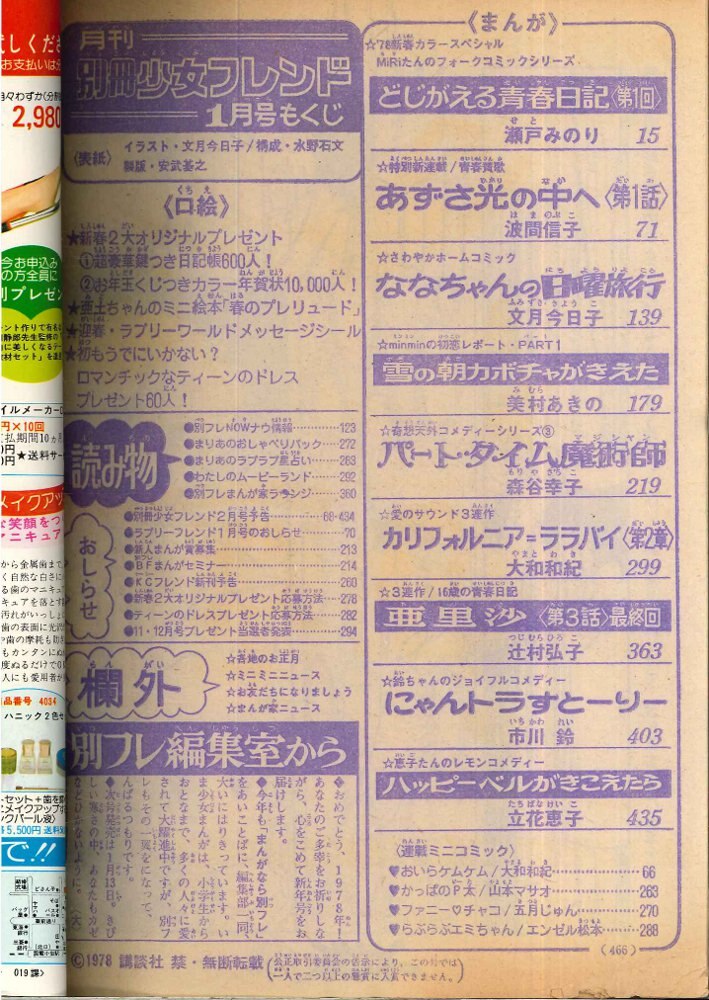 月刊
別冊少女フレンド
1月号もくじ
〈表紙〉
イラスト・文月今日子/構成・水野石文
製版・安武基之
《口絵》
★新春2大オリジナルプレゼント
①超豪華鍵つき日記帳600人!
②お年玉くじつきカラー年賀状10,000人!
★亜土ちゃんのミニ絵本「春のプレリュード」
★迎春・ラブリーワールドメッセージシール
★初もうでにいかない?
ロマンチックなティーンのドレス
プレゼント60人!
読み物
●別フレNOWナウ情報 123
●まりあのおしゃべりパック 272
●まりあのラブラブ星占い 263
●わたしのムービーランド 292
●別フレまんが家ラウンジ 360
おしらせ
●別冊少女フレンド2月号予告 68・434
●ラブリーフレンド1月号のおしらせ 70
●新人まんが賞募集 213
●BFまんがセミナー 214
●KCフレンド新刊予告 260
●新春2大オリジナルプレゼント応募方法 278
●ティーンのドレスプレゼント応募方法 282
●11・12月号プレゼント当選者発表 294
欄外
☆各地のお正月
☆ミニミニニュース
☆お友だちになりましょう
☆まんが家ニュース
別フレ編集室から
◆おめでとう、1978年!
あなたのご多幸をお祈りしな
がら、心をこめて新年号をお
届けします。
◆今年も「まんがなら別フレ」
をあいことばに、編集部一同、
大いにはりきっています。い
ま少女まんがは、小学生から
おとなまで、多くの人々に愛
されて大躍進中ですが、別フ
レもその一翼をになって、
んばるつもりです。
◆次号発売は1月13日。きび
しい寒さの中、あなたもカゼ
などひかないように。
©1978 講談社 禁・無断転載
(公正取引委員会の告示により、この号では
一人で二つ以上の懸賞に入賞できません。)
《まんが》
☆'78新春カラースペシャル
MiRiたんのフォークコミックシリーズ
どじがえる青春日記〈第1回〉
瀬戸みのり 15
☆特別新連載/青春賛歌
あずさ光の中へ〈第1話〉
波間信子 71
☆さわやかホームコミック
ななちゃんの日曜旅行
文月今日子 139
☆minminの初恋レポート・PART1
雪の朝カボチャがきえた
美村あきの 179
☆奇想天外コメディーシリーズ③
パート・タイム魔術師
森谷幸子 219
☆愛のサウンド3連作
カリフォルニア=ララバイ〈第2章〉
大和和紀 299
☆3連作/16歳の青春日記
亜里沙〈第3話〉最終回
辻村弘子 363
☆鈴ちゃんのジョイフルコメディー
にゃんトラすとーりー
市川鈴 403
☆恵子たんのレモンコメディー
ハッピーベルがきこえたら
立花恵子 435
〈連載ミニコミック〉
♥おいらケムケム/大和和紀 66
♥かっぱのP太/山本マサオ 263
♥ファニー♡チャコ/五月じゅん 270
♥らぶらぶエミちゃん/エンゼル松本 288
(466)
2,980
円×10回
品番号 4034
ハニック2色セ
セット+歯を
5,500円
で!!
019課